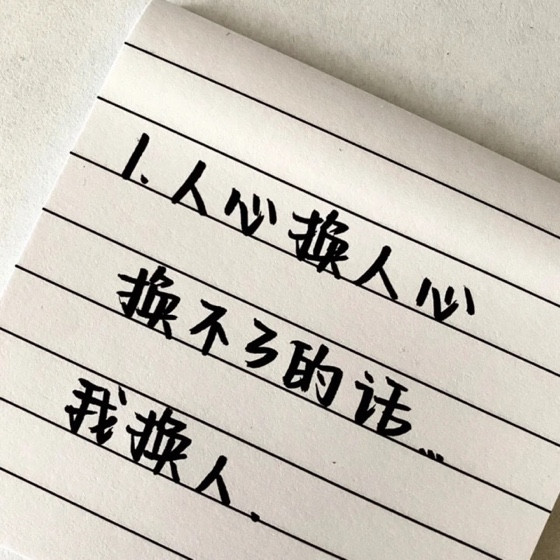 1.人心换人心
换不了的话...
我换人.